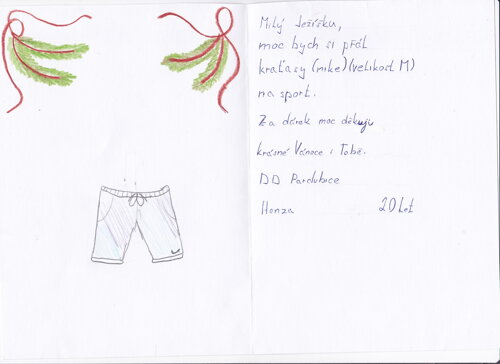 Milý Ježíšku,
moc bych si přál
kraťasy (nike) (velikost M)
na sport.
Za dárek moc děkuju
krásné Vánoce i Tobě.
DD Pardubice
Honza 20 let